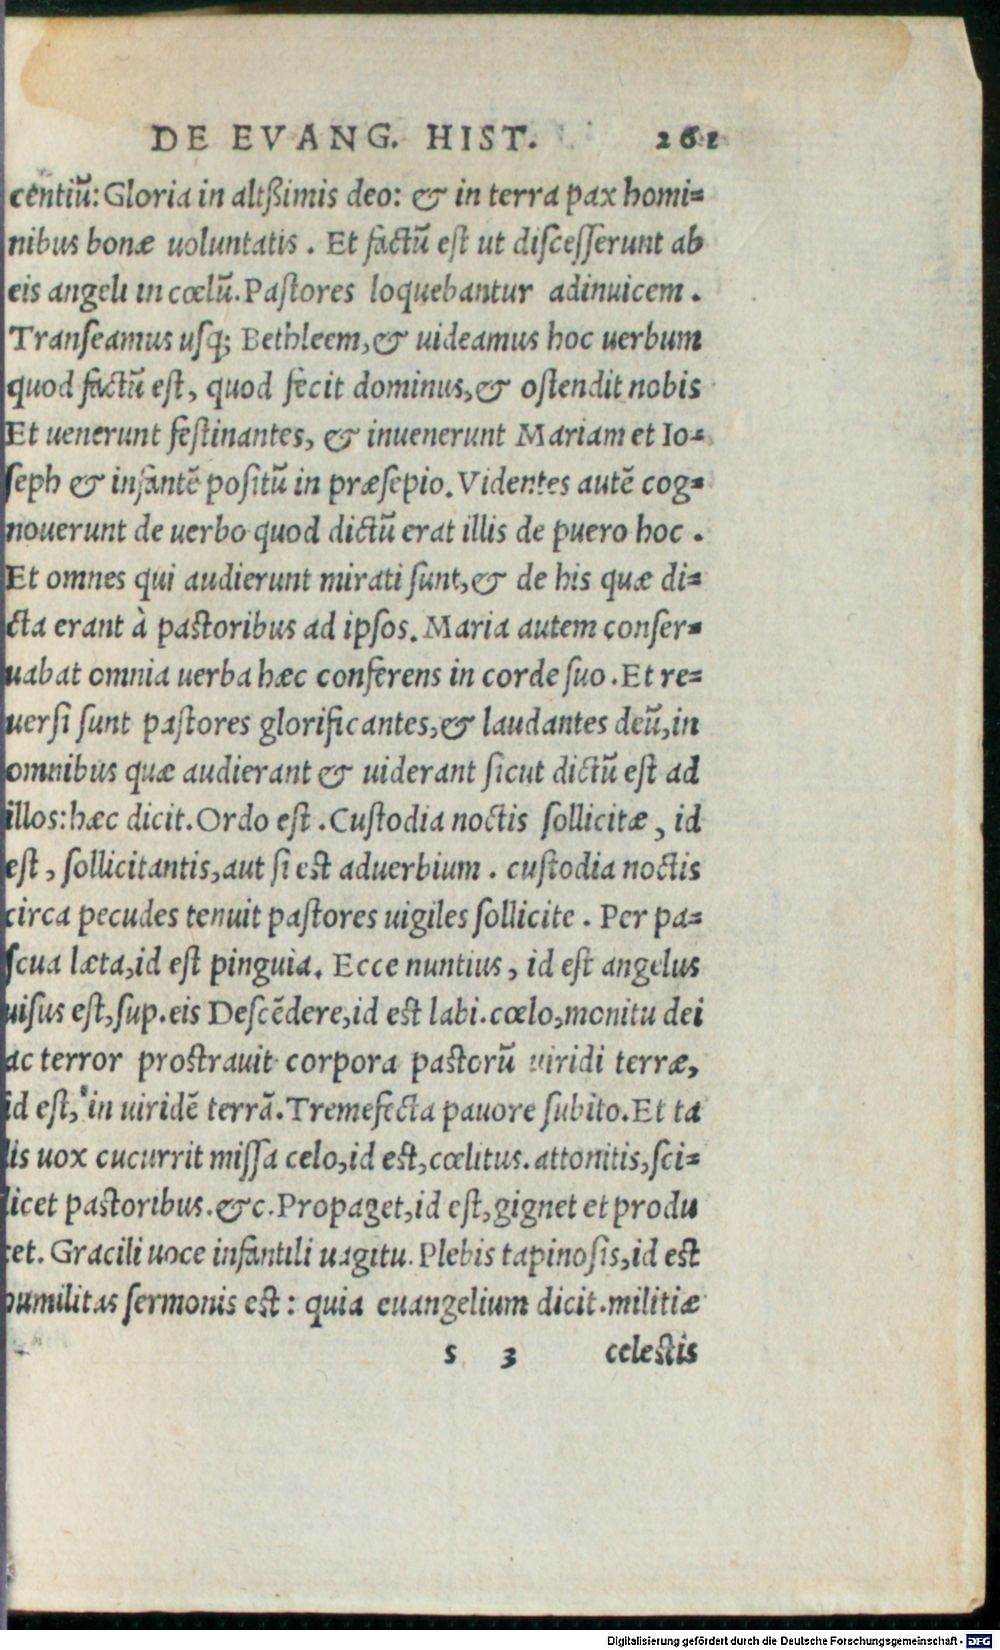 DE EVANG. HIST. 261
centiũ: Gloria in altßimis deo: & in terra pax homi=
nibus bonæ uoluntatis. Et factũ est ut discesserunt ab
eis angeli in cœlũ. Pastores loquebantur adinuicem.
Transeamus usq; Bethleem, & uideamus hoc uerbum
quod factũ est, quod fecit dominus, & ostendit nobis
Et uenerunt festinantes, & inuenerunt Mariam et Io=
seph & infantẽ positũ in præsepio. Videntes autẽ cog=
nouerunt de uerbo quod dictũ erat illis de puero hoc.
Et omnes qui audierunt mirati sunt, & de his quæ di=
cta erant à pastoribus ad ipsos. Maria autem conser=
uabat omnia uerba hæc conferens in corde suo. Et re=
uersi sunt pastores glorificantes, & laudantes deũ, in
omnibus quæ audierant & uiderant sicut dictũ est ad
illos: hæc dicit. Ordo est. Custodia noctis sollicitæ, id
est, sollicitantis, aut si est aduerbium. custodia noctis
circa pecudes tenuit pastores uigiles sollicite. Per pa=
scua læta, id est pinguia. Ecce nuntius, id est angelus
uisus est, sup. eis Descẽdere, id est labi. cœlo, monitu dei
ac terror prostrauit corpora pastorũ uiridi terræ,
id est, in uiridẽ terrã. Tremefecta pauore subito. Et ta
lis uox cucurrit missa celo, id est, cœlitus. attonitis, sci=
licet pastoribus. &c. Propaget, id est, gignet et produ
cet. Gracili uoce infantili uagitu. Plebis tapinosis, id est
humilitas sermonis est: quia euangelium dicit. militiæ
s 3 celestis
Digitalisierung gefördert durch die Deutsche Forschungsgemeinschaft - DFG